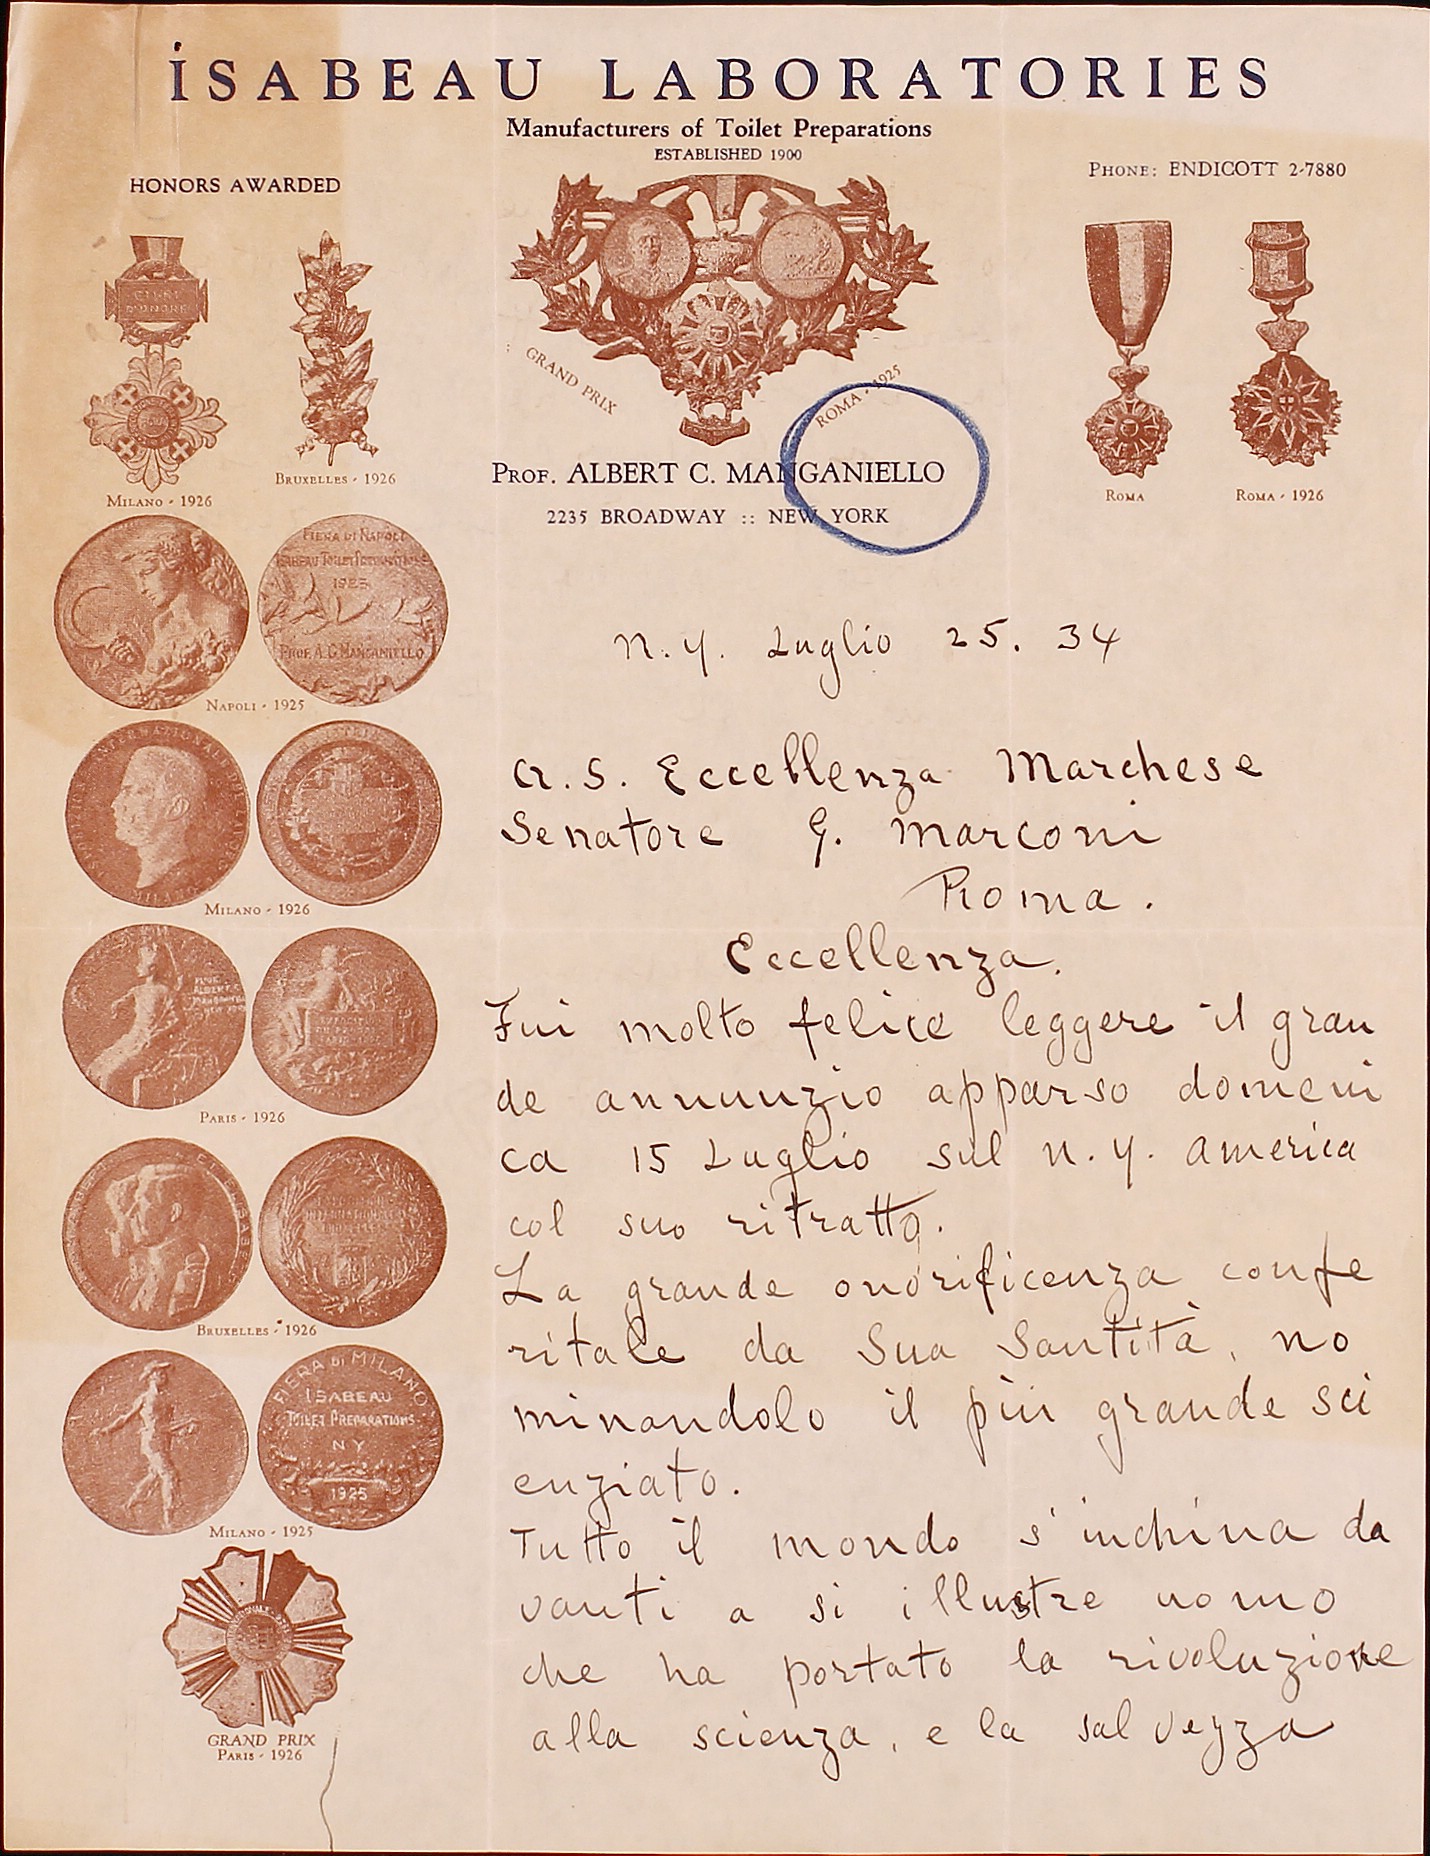 ISABEAU LABORATORIES
Manufacturers of Toilet Preparations
ESTABLISHED 1900
HONORS AWARDED
PHONE: ENDICOTT 2-7880
GRAND PRIX
ROMA - 1925
PROF. ALBERT C. MANGANIELLO
2235 BROADWAY :: NEW YORK
MILANO - 1926
BRUXELLES - 1926
ROMA
ROMA - 1926
FIERA DI NAPOLI
ISABEAU TOILET PREPARATIONS
1925
PROF. A.C. MANGANIELLO
NAPOLI - 1925
MILANO
MILANO - 1926
PARIS - 1926
BRUXELLES - 1926
FIERA DI MILANO
ISABEAU
TOILET PREPARATIONS
N Y
1925
MILANO - 1925
GRAND PRIX
PARIS - 1926
N. Y. Luglio 25. 34
A. S. Eccellenza Marchese
Senatore G. Marconi
Roma.
Eccellenza.
Fui molto felice leggere il gran
de annunzio apparso domeni
ca 15 Luglio sul N. Y. America
col suo ritratto.
La grande onorificenza confe
ritale da Sua Santità, no
minandolo il più grande sci
enziato.
Tutto il mondo s'inchina da
vanti a si illustre uomo
che ha portato la rivoluzione
alla scienza, e la salvezza